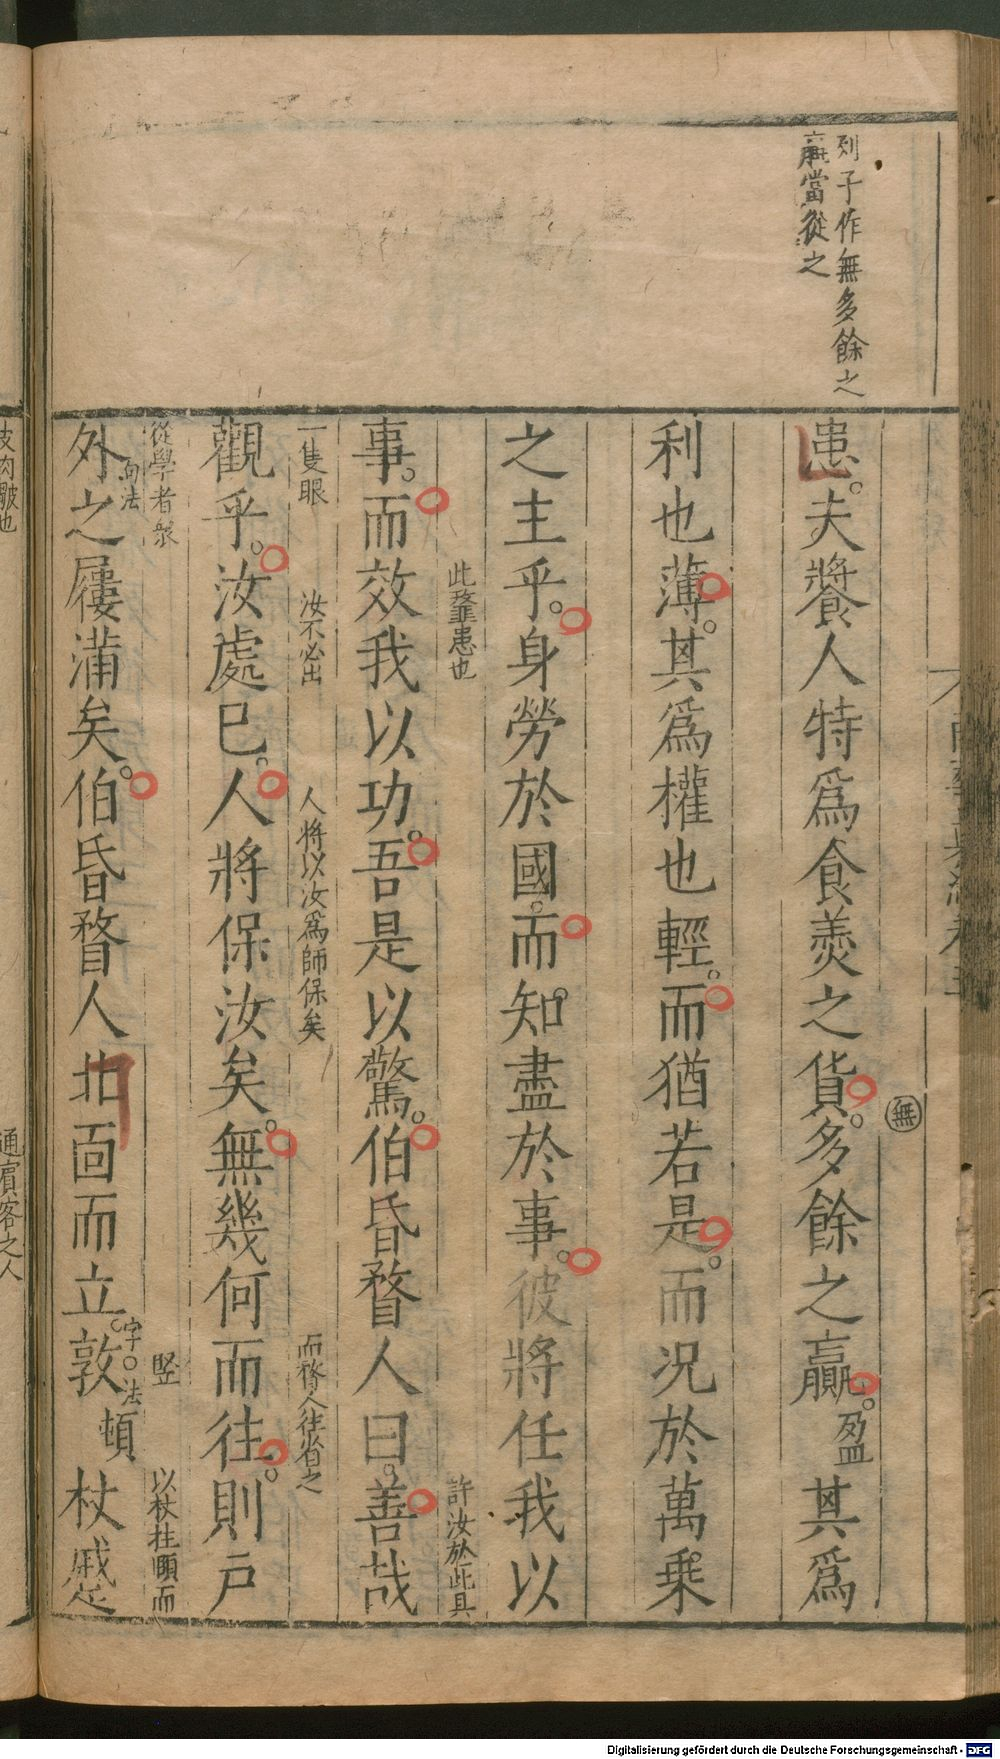 列子作無多餘之
贏當從之
無
患夫饔人特爲食羮之貨多餘之贏盈其爲
利也薄其爲權也輕而猶若是而況於萬乘
之主乎身勞於國而知盡於事彼將任我以
此𩐎患也
許汝於此具
事而效我以功吾是以驚伯昏瞀人曰善哉
一隻眼
汝不必出
人將以汝爲師保矣
而瞀人往省之
觀乎汝處已人將保汝矣無幾何而往則戶
從學者衆
竪
以杖拄頤而
句法
字法
外之屨滿矣伯昏瞀人北面而立敦頓杖蹙
皮肉皺也
通賓客之人
Digitalisierung gefördert durch die Deutsche Forschungsgemeinschaft - DFG